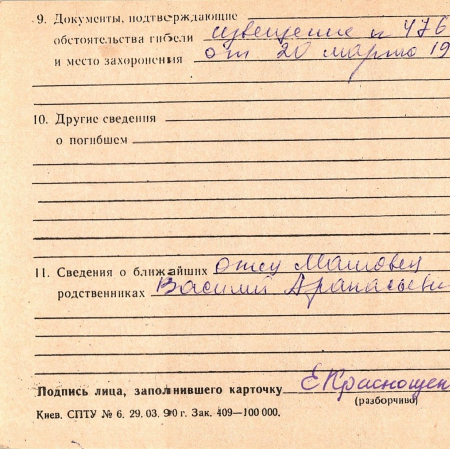 9. Документы, подтверждающие
обстоятельства гибели извещение н 476
и место захоронения от 20 марта 19
10. Другие сведения
о погибшем
11. Сведения о ближайших отец Маловец
родственниках Василий Афанасьеви
Подпись лица, заполнившего карточку ЕКраснощек
(разборчиво)
Киев. СПТУ № 6. 29. 03. 90 г. Зак. 409—100 000.